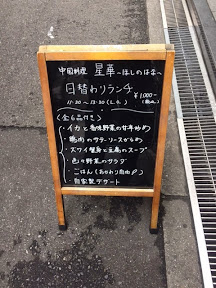 中国料理 星華 〜ほしのはな〜
日替わりランチ
¥1,000-
(税込)
11:30〜13:30(L.O.)
〈全6品付き〉
・イカと香味野菜の甘辛炒め
・鶏肉のサテ・ソースから揚げ
・ズワイ蟹と豆腐のスープ
・色々野菜のサラダ
・ごはん(おかわり自由)
・自家製デザート